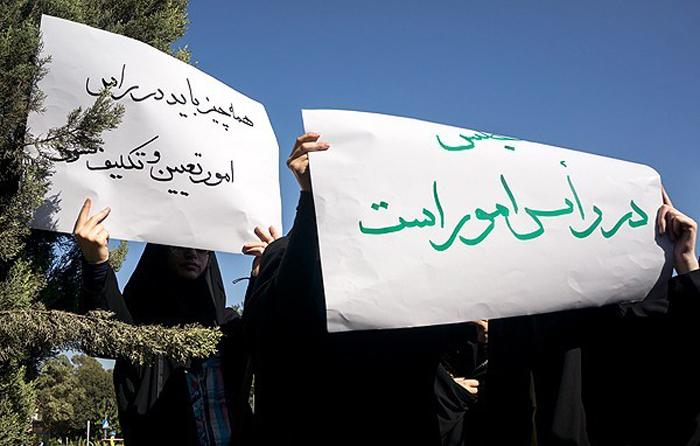 همه چیز باید در راس
امور تعیین و تکلیف شود
مجلس
در رأس امور است